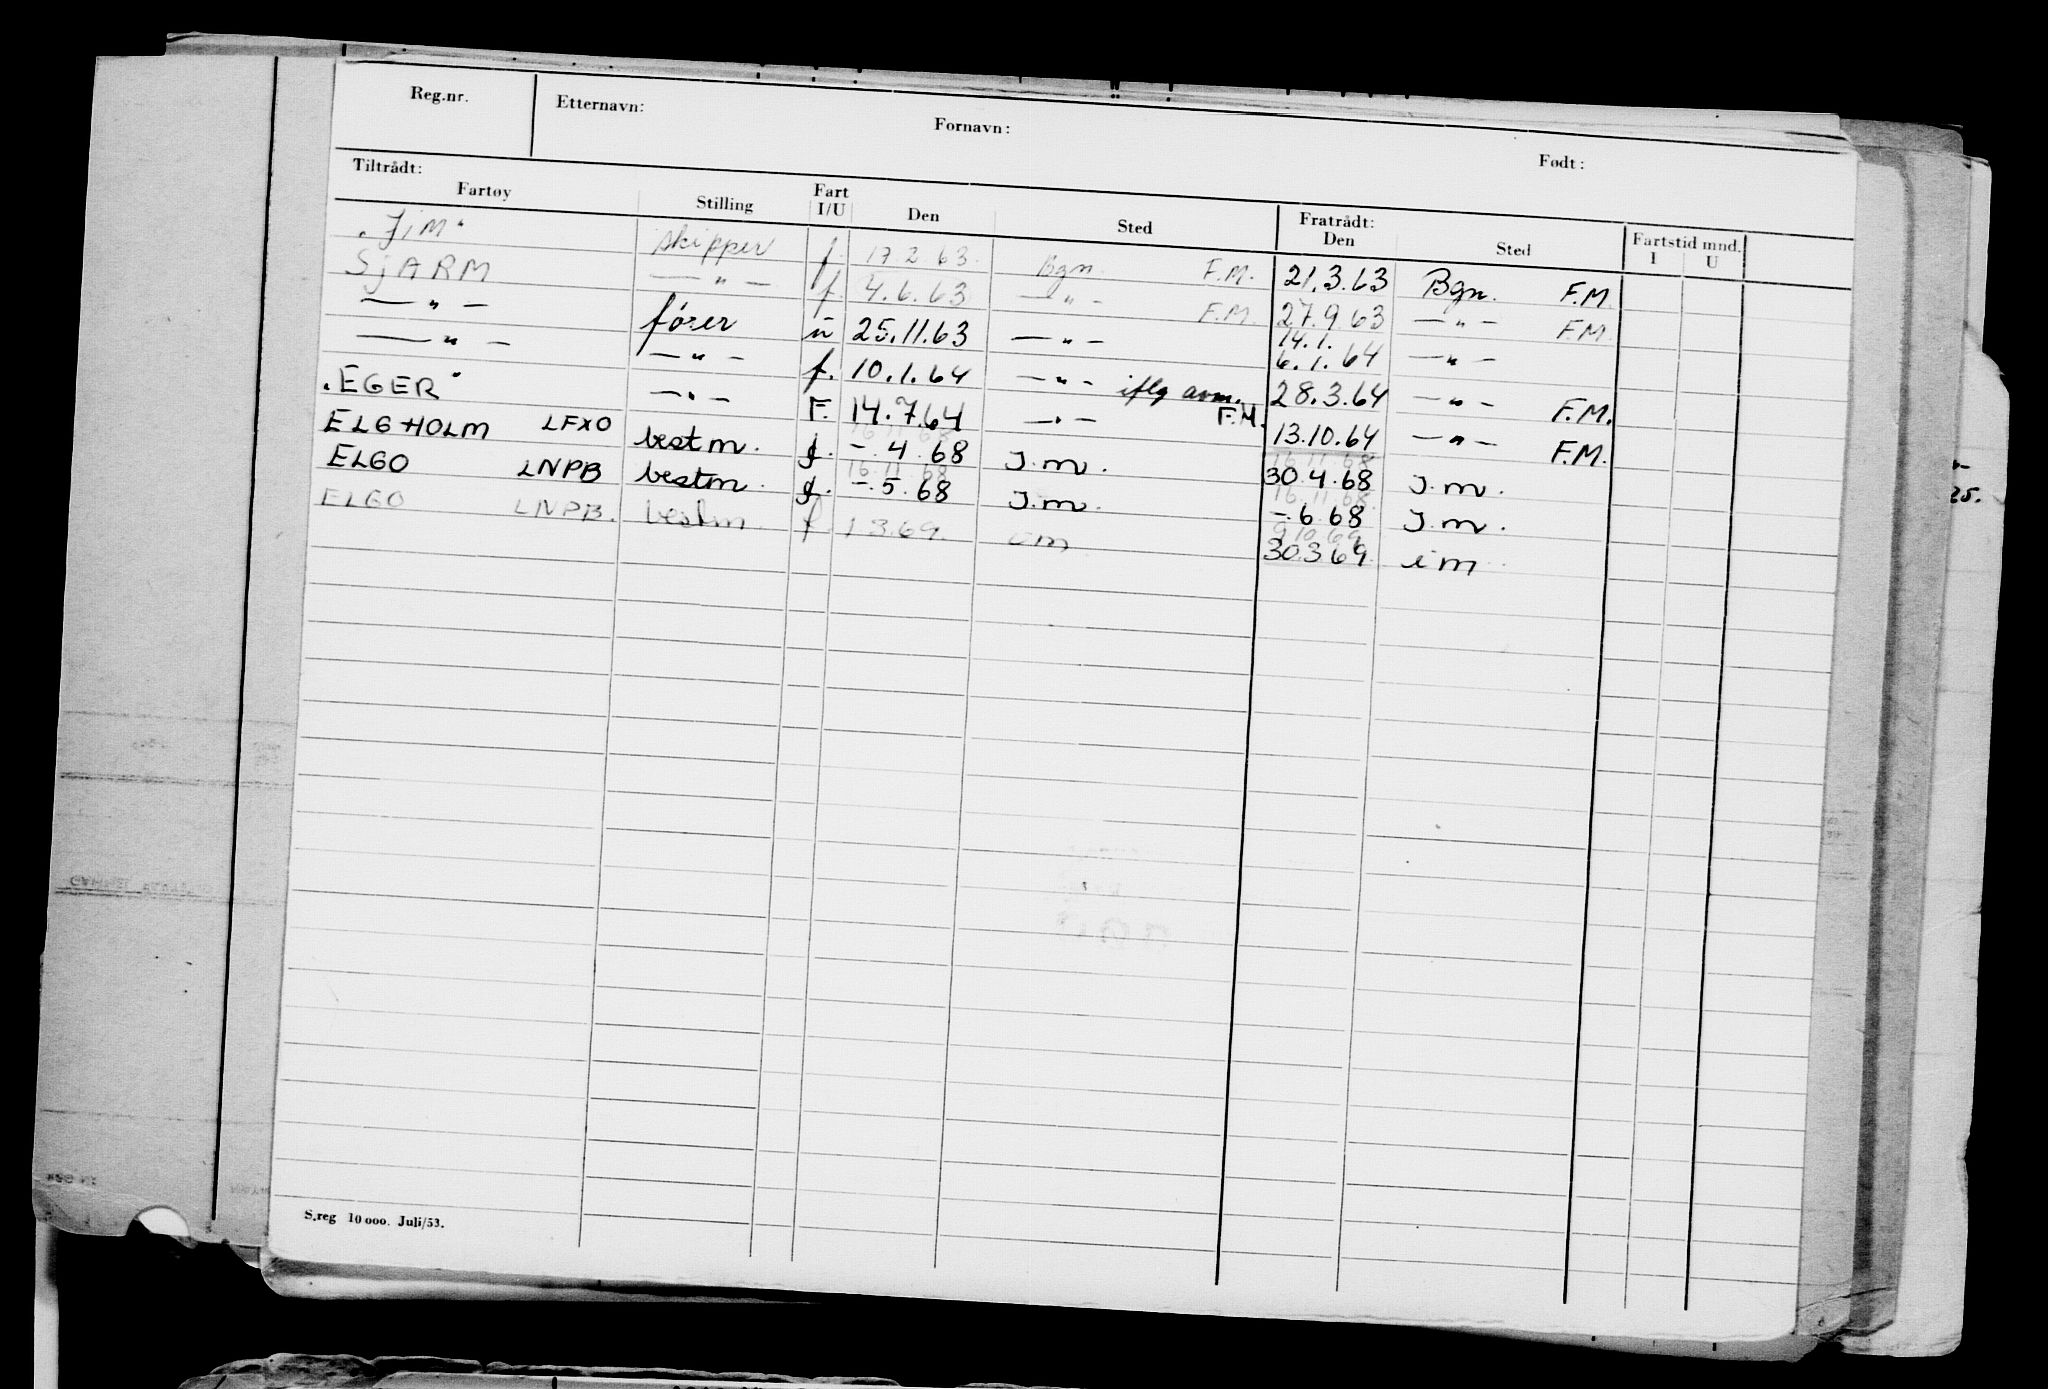 Reg.nr. Etternavn: Fornavn: Født:
Tiltrådt: Fratrådt:
Fartøy Stilling Fart I/U Den Sted Den Sted Fartstid mnd. I U
"JiM" skipper f. 17.2.63. Bgn. F.M. 21.3.63 Bgn. F.M.
SjARM — " — f. 4.6.63 — " — F.M. 27.9.63 — " — F.M.
14.1.
— " — fører u 25.11.63 — " — 6.1.64 — " —
— " — — " — f. 10.1.64 — " — iflg avm. 28.3.64 — " — F.M.
"EGER" — " — F. 14.7.64 — " — F.M. 13.10.64 — " — F.M.
16.11.68 16.11.68
ELGHOLM LFXO bestm. f. -.4.68 J.m. 30.4.68 J.m.
16.11.68 16.11.68
ELGO LNPB bestm. f. -.5.68 J.m. -.6.68 J.m.
9.10.69
ELGO LNPB. bestm. f. 1.3.69. im 30.3.69. im
S.reg 10 000. Juli/53.
25.